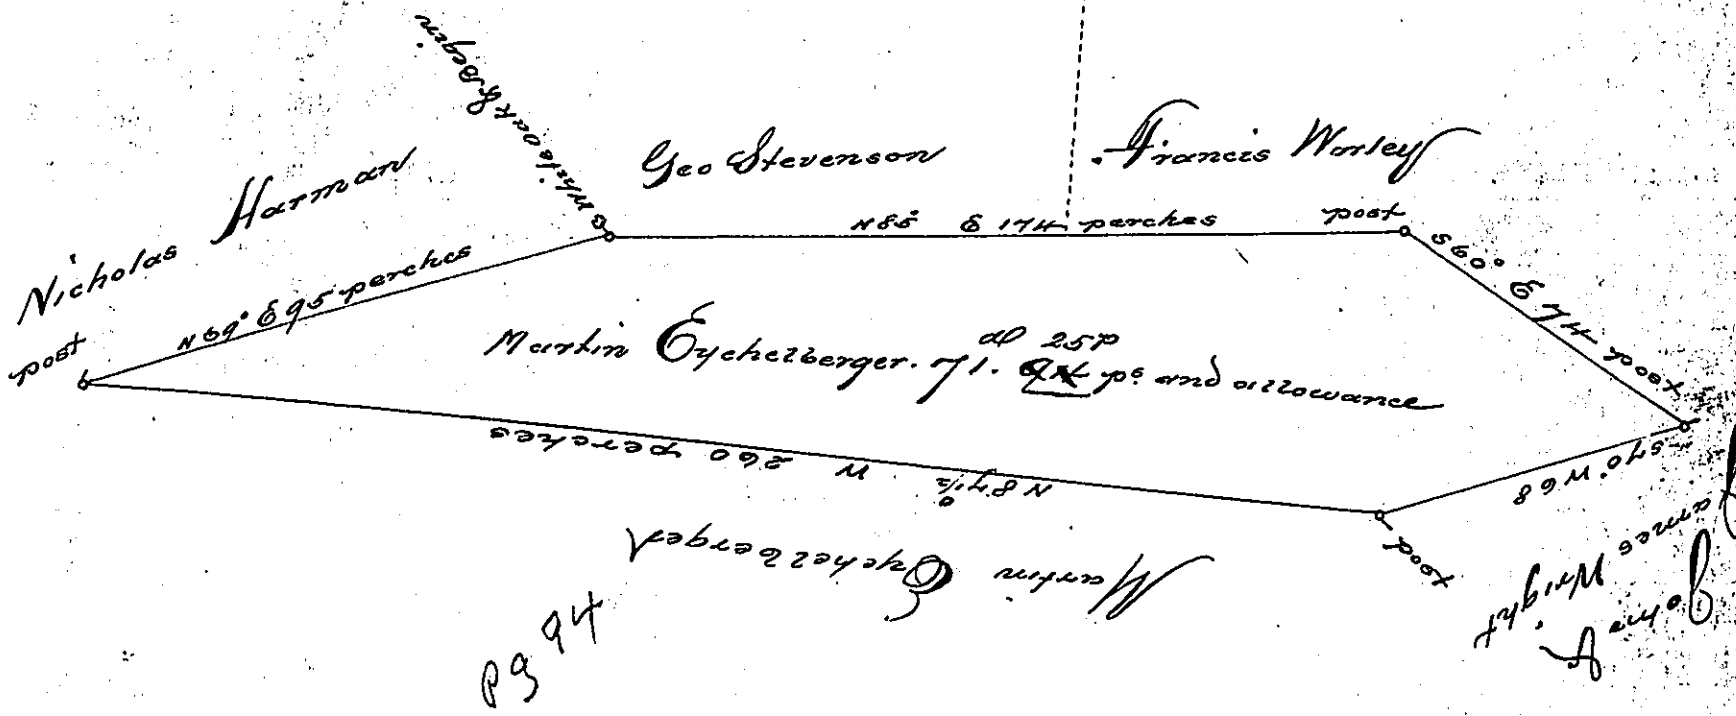 White Oak & Begin
Nicholas Harman
Geo Stevenson
Francis Worley
post
N 69° E 95 perches
N 85° E 174 perches
post
S 60° E 74
post
Martin Eychelberger. 71. a 25 P
ps. and allowance
S 70° W 68
post
N 87 1/2° W 260 perches
Martin Eychelberger
John &
James Wright
pg 94